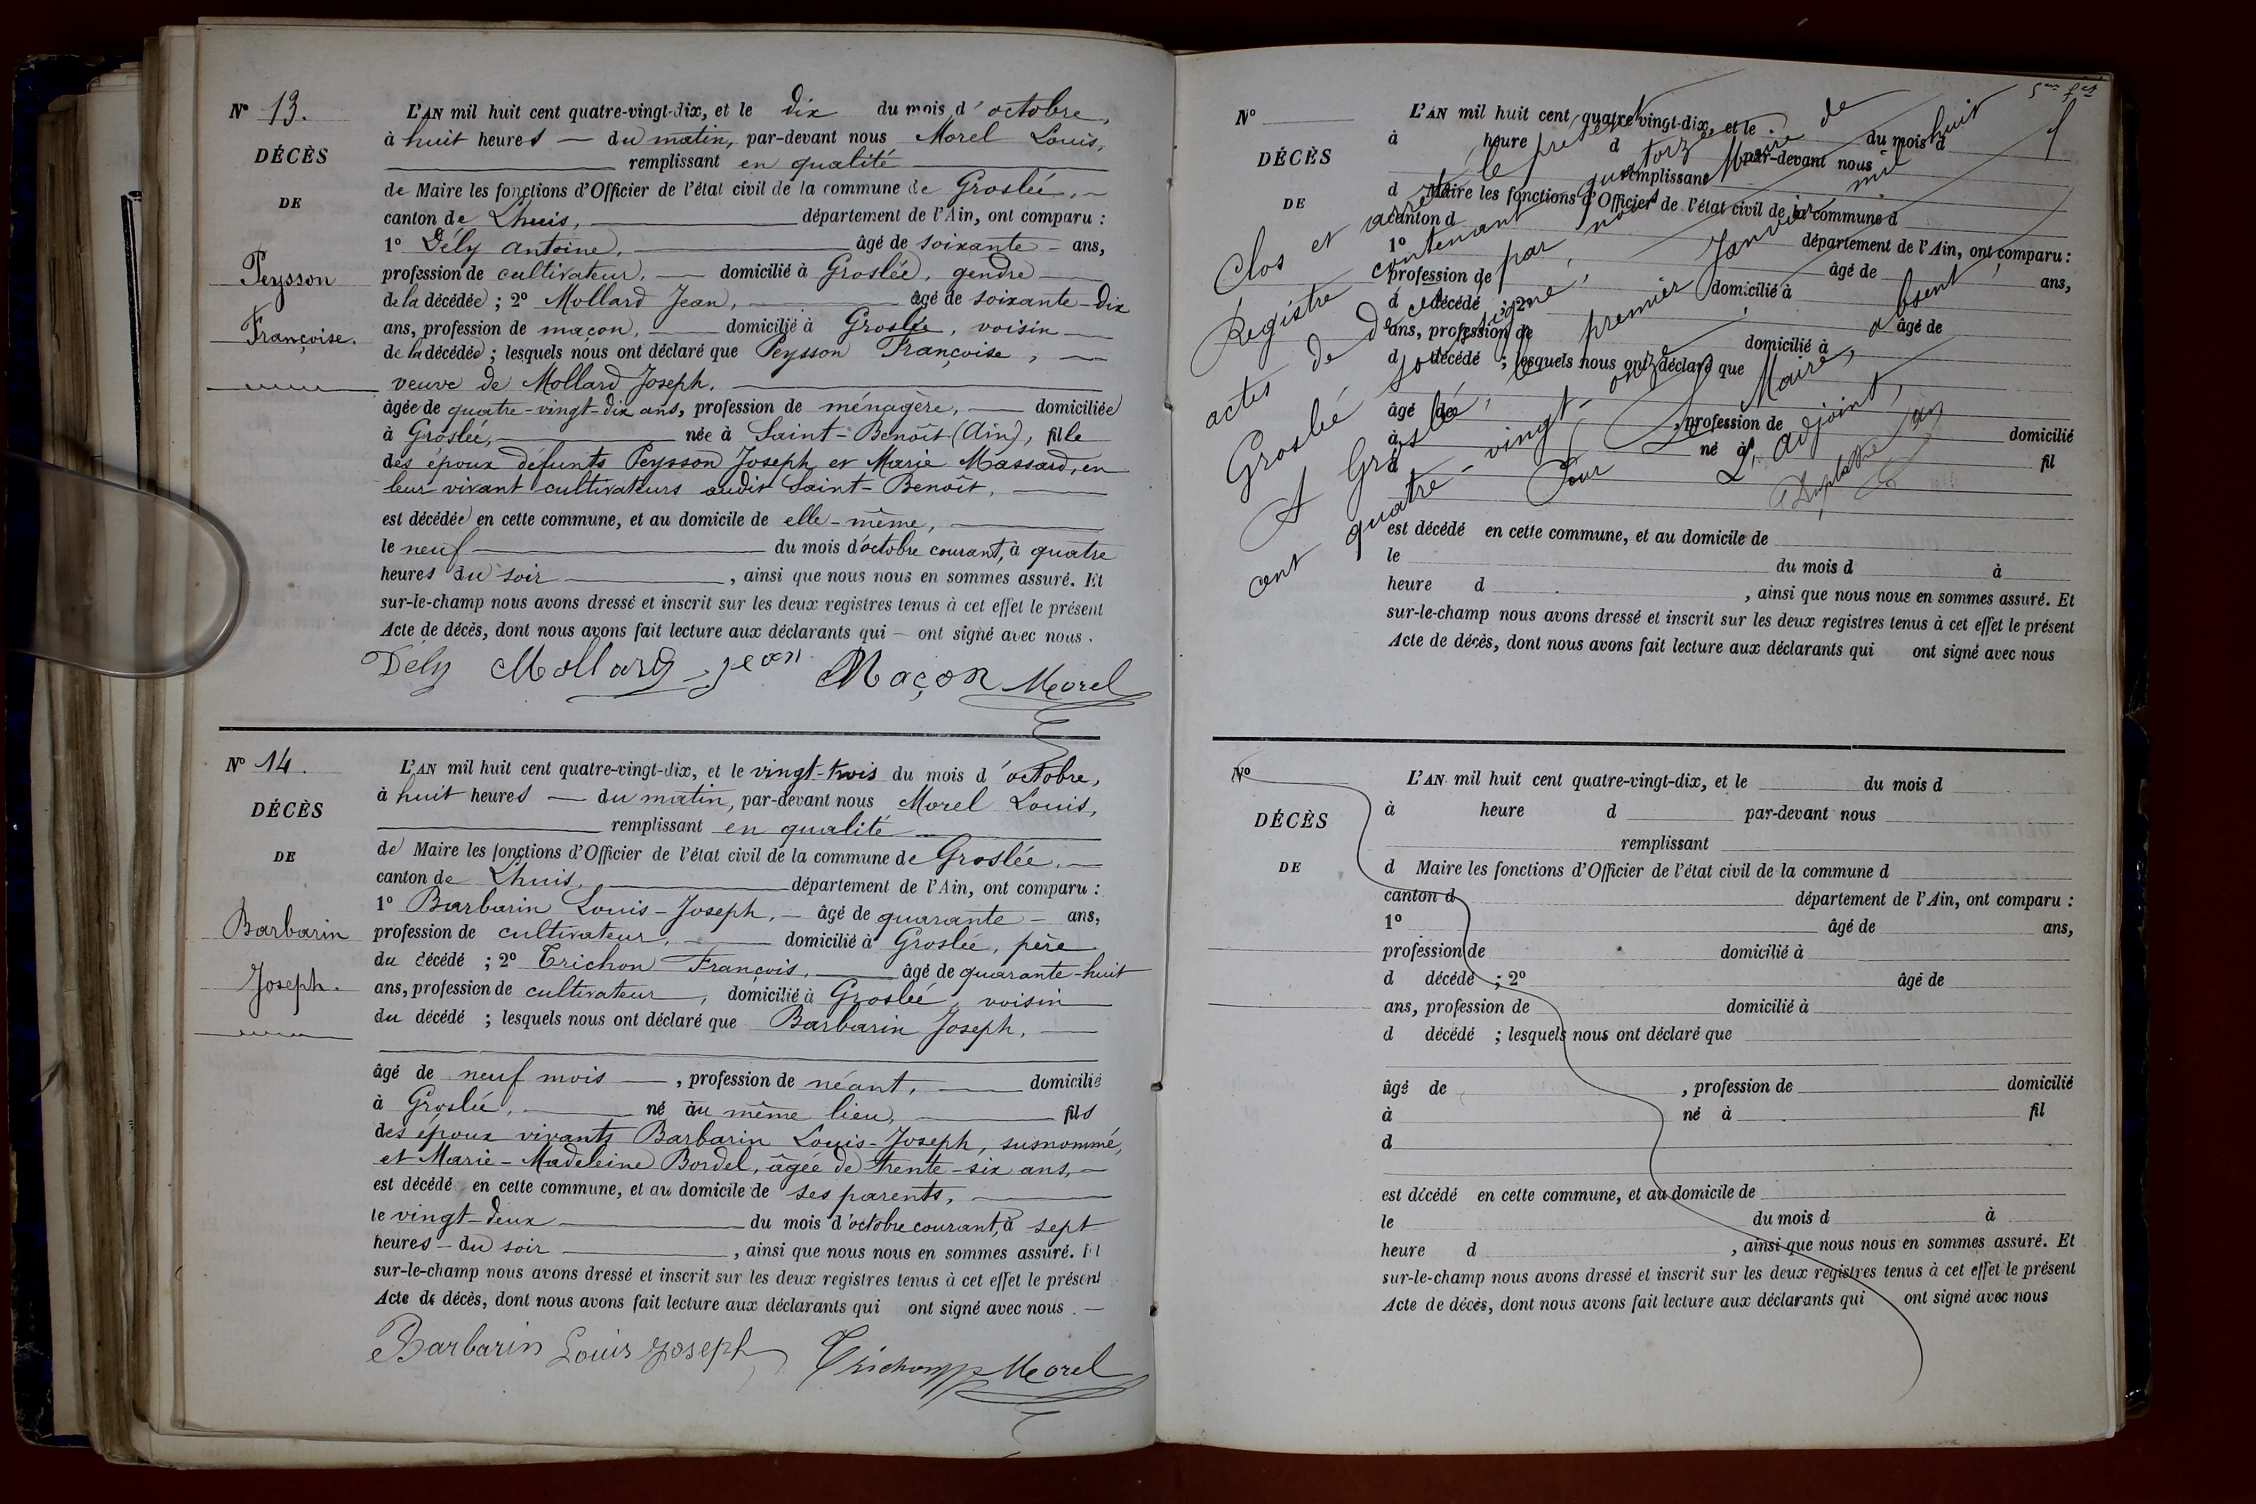 N° 13.
DÉCÈS
DE
Peysson
Françoise.
L'AN mil huit cent quatre-vingt-dix, et le dix du mois d'octobre,
à huit heures — du matin, par-devant nous Morel Louis,
remplissant en qualité
de Maire les fonctions d'Officier de l'état civil de la commune de Groslée, —
canton de Lhuis, département de l'Ain, ont comparu :
1° Dély Antoine, âgé de soixante — ans,
profession de cultivateur, — domicilié à Groslée, gendre
de la décédée ; 2° Mollard Jean, âgé de soixante-dix
ans, profession de maçon, — domicilié à Groslée, voisin
de la décédée ; lesquels nous ont déclaré que Peysson Françoise, —
veuve de Mollard Joseph.
âgée de quatre-vingt-dix ans, profession de ménagère, — domiciliée
à Groslée, née à Saint-Benoît (Ain), fille
des époux défunts Peysson Joseph et Marie Massard, en
leur vivant cultivateurs audit Saint-Benoît,
est décédée en cette commune, et au domicile de elle-même,
le neuf du mois d'octobre courant, à quatre
heures du soir , ainsi que nous nous en sommes assuré. Et
sur-le-champ nous avons dressé et inscrit sur les deux registres tenus à cet effet le présent
Acte de décès, dont nous avons fait lecture aux déclarants qui — ont signé avec nous.
Dély Mollard Jean Maçon Morel
N° 14.
DÉCÈS
DE
Barbarin
Joseph.
L'AN mil huit cent quatre-vingt-dix, et le vingt-trois du mois d'octobre,
à huit heures — du matin, par-devant nous Morel Louis,
remplissant en qualité
de Maire les fonctions d'Officier de l'état civil de la commune de Groslée, —
canton de Lhuis, département de l'Ain, ont comparu :
1° Barbarin Louis-Joseph, — âgé de quarante — ans,
profession de cultivateur, domicilié à Groslée, père
du décédé ; 2° Trichon François, âgé de quarante-huit
ans, profession de cultivateur, domicilié à Groslée, voisin
du décédé ; lesquels nous ont déclaré que Barbarin Joseph, —
âgé de neuf mois —, profession de néant, — domicilié
à Groslée, né au même lieu, fils
des époux vivants Barbarin Louis-Joseph, susnommé,
et Marie-Madeleine Bordel, âgée de trente-six ans, —
est décédé en cette commune, et au domicile de ses parents,
le vingt-deux du mois d'octobre courant, à sept
heures — du soir , ainsi que nous nous en sommes assuré. Et
sur-le-champ nous avons dressé et inscrit sur les deux registres tenus à cet effet le présent
Acte de décès, dont nous avons fait lecture aux déclarants qui ont signé avec nous. —
Barbarin Louis Joseph Trichon Morel
N°
DÉCÈS
DE
L'AN mil huit cent quatre-vingt-dix, et le du mois d
à heure d par-devant nous
remplissant
d Maire les fonctions d'Officier de l'état civil de la commune d
canton d département de l'Ain, ont comparu :
1° âgé de ans,
profession de domicilié à
d décédé ; 2° âgé de
ans, profession de domicilié à
d décédé ; lesquels nous ont déclaré que
âgé de , profession de domicilié
à né à fil
d
est décédé en cette commune, et au domicile de
le du mois d à
heure d , ainsi que nous nous en sommes assuré. Et
sur-le-champ nous avons dressé et inscrit sur les deux registres tenus à cet effet le présent
Acte de décès, dont nous avons fait lecture aux déclarants qui ont signé avec nous
Clos et arrêté le présent
Registre contenant quatorze
actes de décès par nous Maire de
Groslé soussigné,
A Groslée, le premier Janvier mil huit
cent quatre-vingt-onze.
Pour Le Maire, absent,
L'Adjoint,
N°
DÉCÈS
DE
L'AN mil huit cent quatre-vingt-dix, et le du mois d
à heure d par-devant nous
remplissant
d Maire les fonctions d'Officier de l'état civil de la commune d
canton d département de l'Ain, ont comparu :
1° âgé de ans,
profession de domicilié à
d décédé ; 2° âgé de
ans, profession de domicilié à
d décédé ; lesquels nous ont déclaré que
âgé de , profession de domicilié
à né à fil
d
est décédé en cette commune, et au domicile de
le du mois d à
heure d , ainsi que nous nous en sommes assuré. Et
sur-le-champ nous avons dressé et inscrit sur les deux registres tenus à cet effet le présent
Acte de décès, dont nous avons fait lecture aux déclarants qui ont signé avec nous